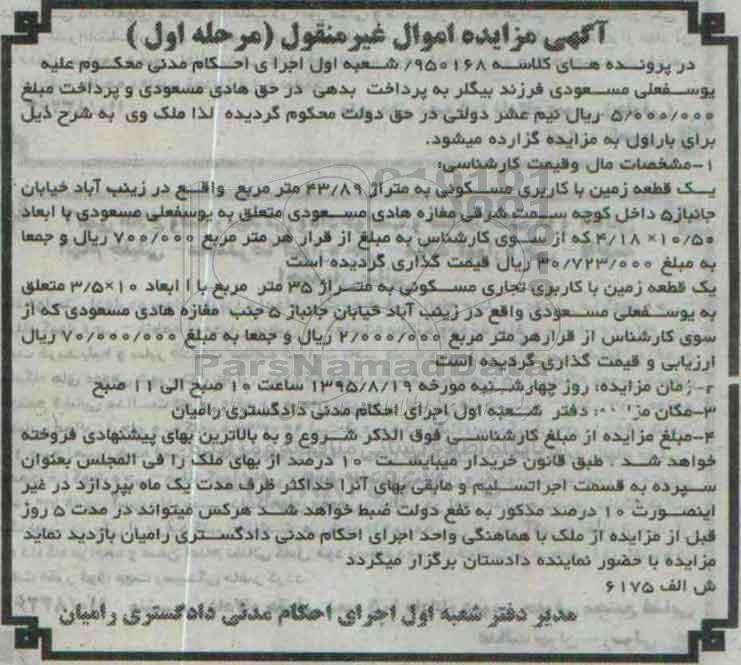 آگهی مزایده اموال غیرمنقول (مرحله اول)
در پرونده های کلاسه ۹۵۰۱۶۸/ شعبه اول اجرا ی احکام مدنی محکوم علیه
یوسفعلی مسعودی فرزند بیگلر به پرداخت بدهی در حق هادی مسعودی و پرداخت مبلغ
۵/۰۰۰/۰۰۰ ریال نیم عشر دولتی در حق دولت محکوم گردیده لذا ملک وی به شرح ذیل
برای باراول به مزایده گزارده میشود.
۱-مشخصات مال وقیمت کارشناسی:
یک قطعه زمین با کاربری مسکونی به متراژ ۴۳/۸۹ متر مربع واقع در زینب آباد خیابان
جانباز۵ داخل کوچه سمت شرقی مغازه هادی مسعودی متعلق به یوسفعلی مسعودی با ابعاد
۱۰/۵۰× ۴/۱۸ که از سوی کارشناس به مبلغ از قرار هر متر مربع ۷۰۰/۰۰۰ ریال و جمعا
به مبلغ ۳۰/۷۲۳/۰۰۰ ریال قیمت گذاری گردیده است
یک قطعه زمین با کاربری تجاری مسکونی به متراژ ۳۵ متر مربع با ا ابعاد ۱۰×۳/۵ متعلق
به یوسفعلی مسعودی واقع در زینب آباد خیابان جانباز ۵ جنب مغازه هادی مسعودی که از
سوی کارشناس از قرارهر متر مربع ۲/۰۰۰/۰۰۰ ریال و جمعا به مبلغ ۷۰/۰۰۰/۰۰۰ ریال
ارزیابی و قیمت گذاری گردیده است
۲-زمان مزایده: روز چهارشنبه مورخه ۱۳۹۵/۸/۱۹ ساعت ۱۰ صبح الی ۱۱ صبح
۳-مکان دفتر شعبه اول اجرای احکام مدنی دادگستری رامیان
۴-مبلغ مزایده از مبلغ کارشناسی فوق الذکر شروع و به بالاترین بهای پیشنهادی فروخته
خواهد شد . طبق قانون خریدار میبایست ۱۰ درصد از بهای ملک را فی المجلس بعنوان
سپرده به قسمت اجراتسلیم و مابقی بهای آنرا حداکثر ظرف مدت یک ماه بپردازد در غیر
اینصورت ۱۰ درصد مذکور به نفع دولت ضبط خواهد شد هرکس میتواند در مدت ۵ روز
قبل از مزایده از ملک با هماهنگی واحد اجرای احکام مدنی دادگستری رامیان بازدید نماید
مزایده با حضور نماینده دادستان برگزار میگردد
ش الف ۶۱۷۵
مدیر دفتر شعبه اول اجرای احکام مدنی دادگستری رامیان
ParsNamadData